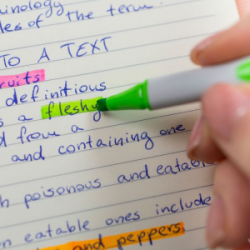 minology
les of the term.
TO A TEXT
ruits
definitious
s a fleshy
d from a
and containing one
h poisonous and eatabl
n eatable ones include
and peppers.